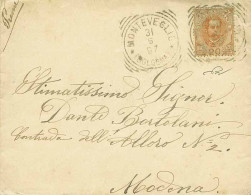 MONTEVEGLIO
31
5
97
(BOLOGNA)
Stimatissimo Signor
Dante Bortolani
Contrada dell' Alloro N. 2.
Modena